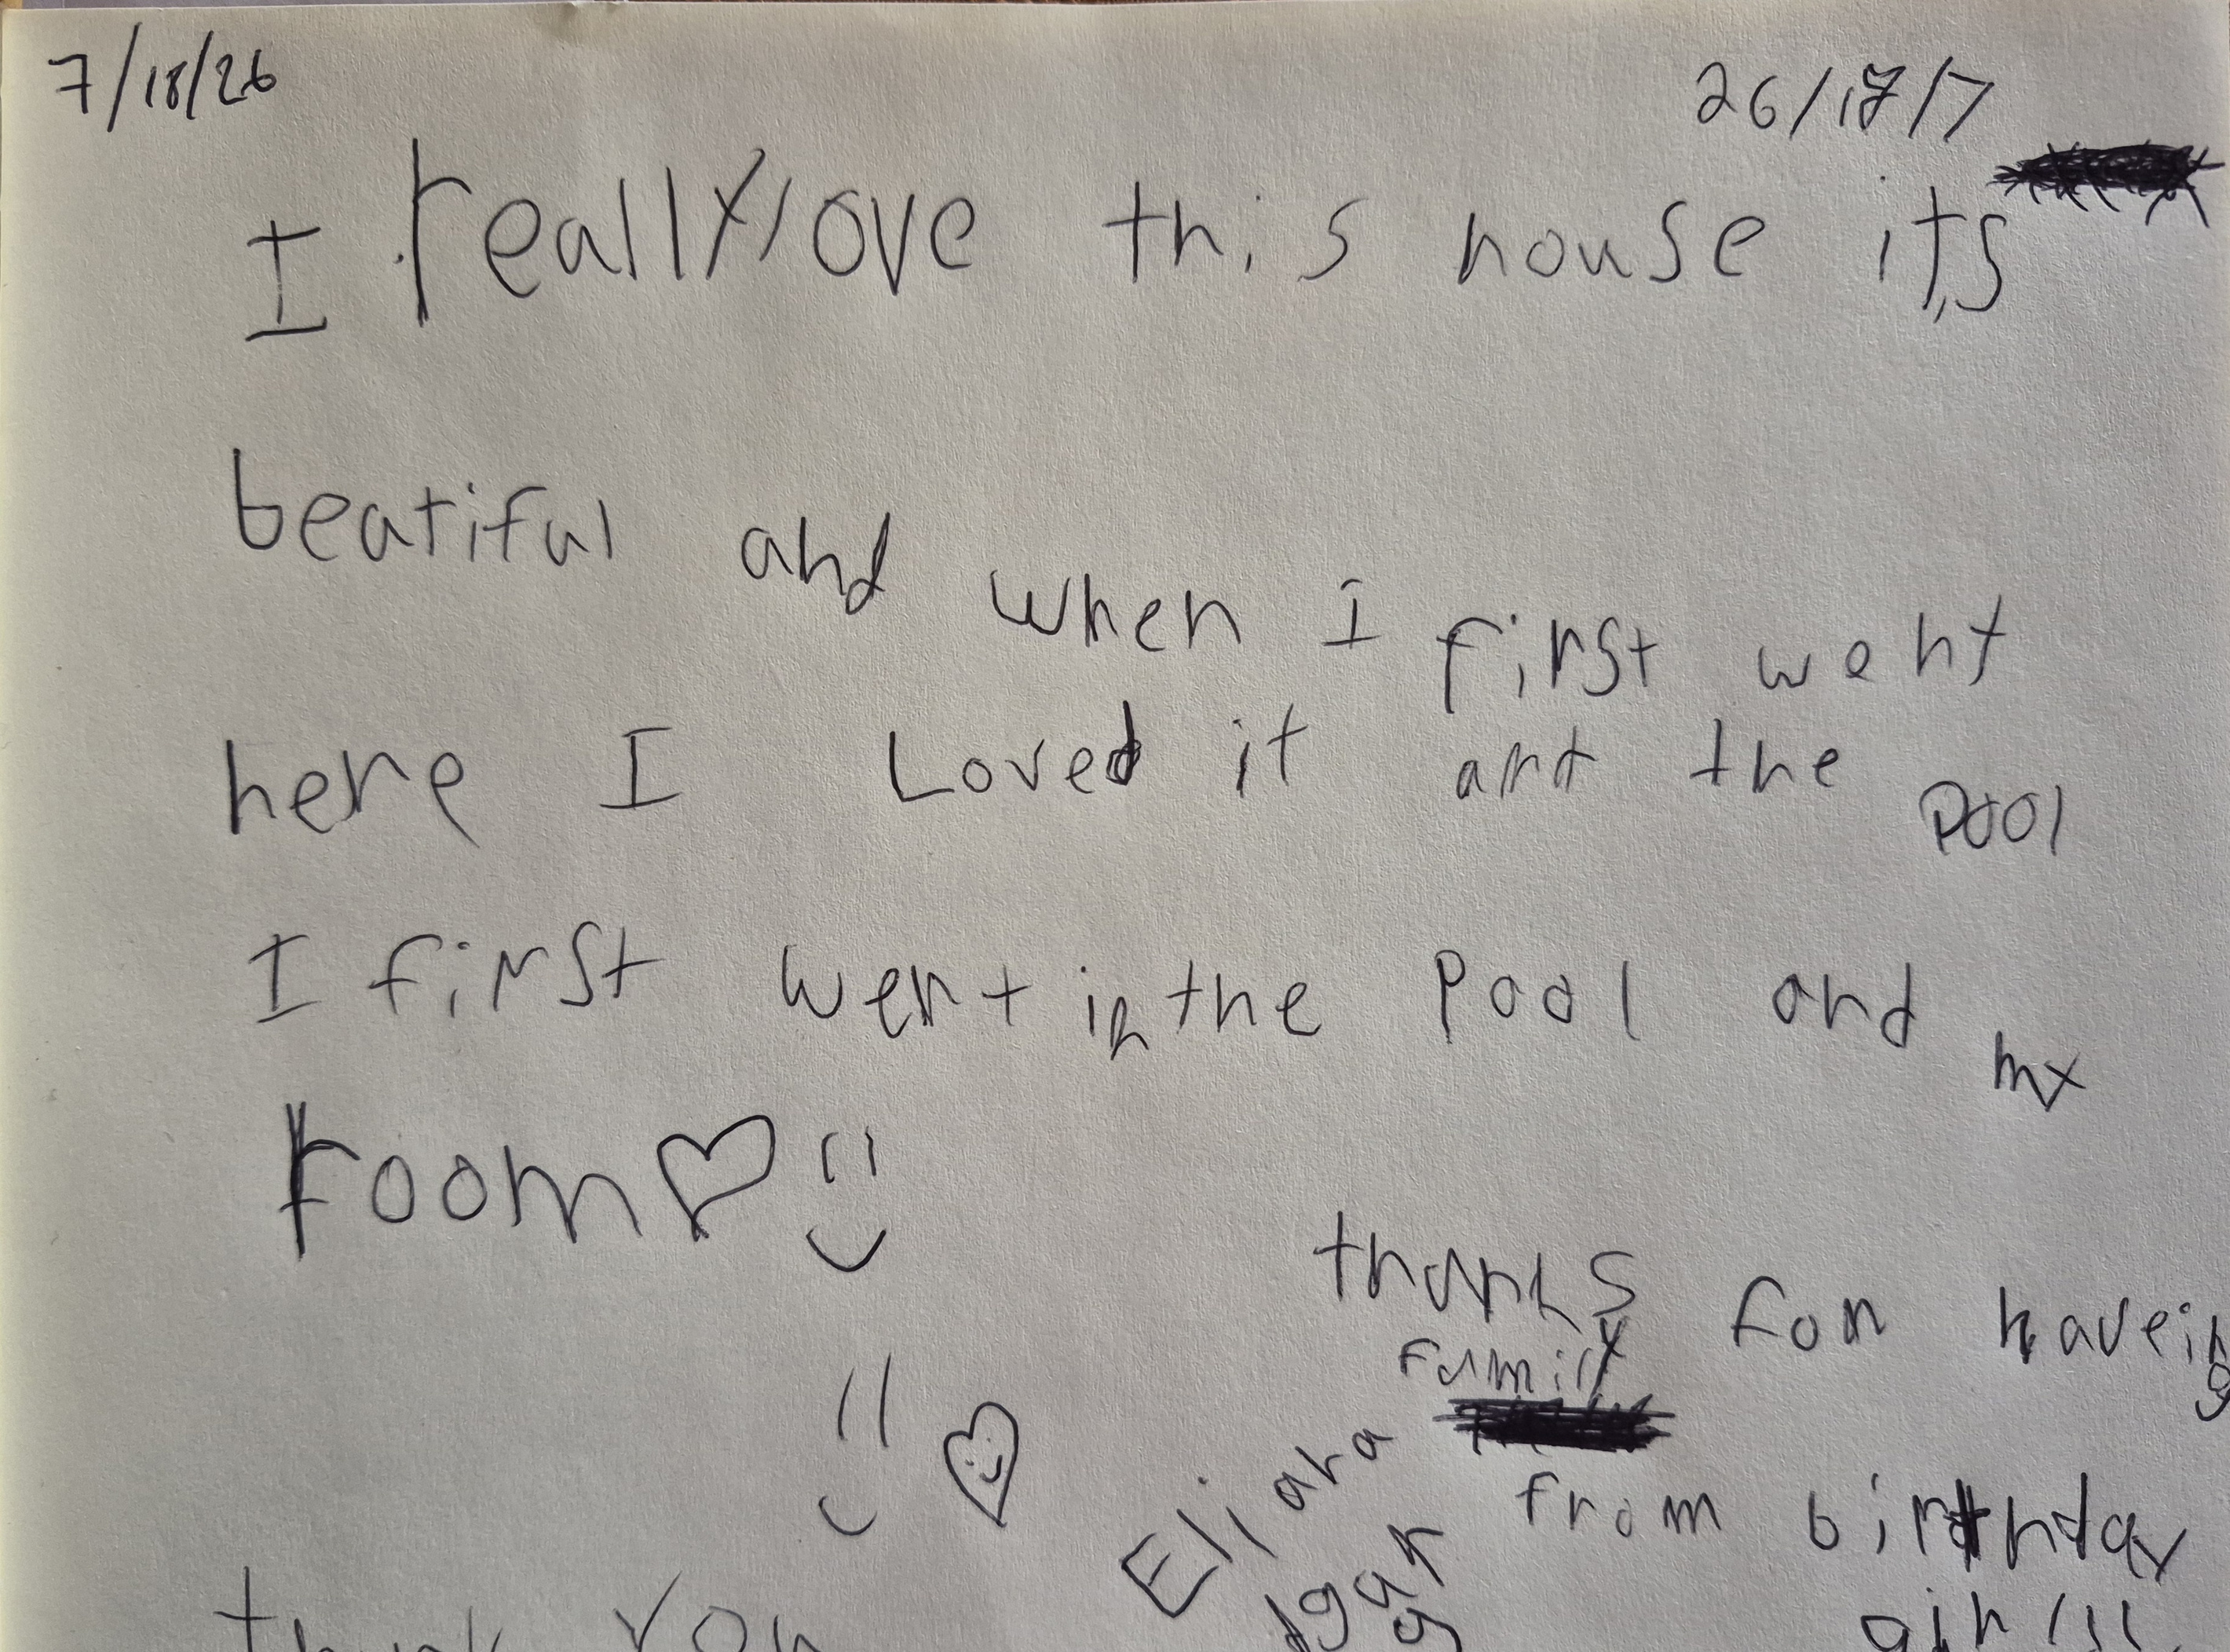 7/18/26
26/17/7
I really love this house it's
beatiful and when I first went
here I Loved it and the pool
I first went in the pool and my
room
thanks for haveing
family
Eliana
from birthday
thank you